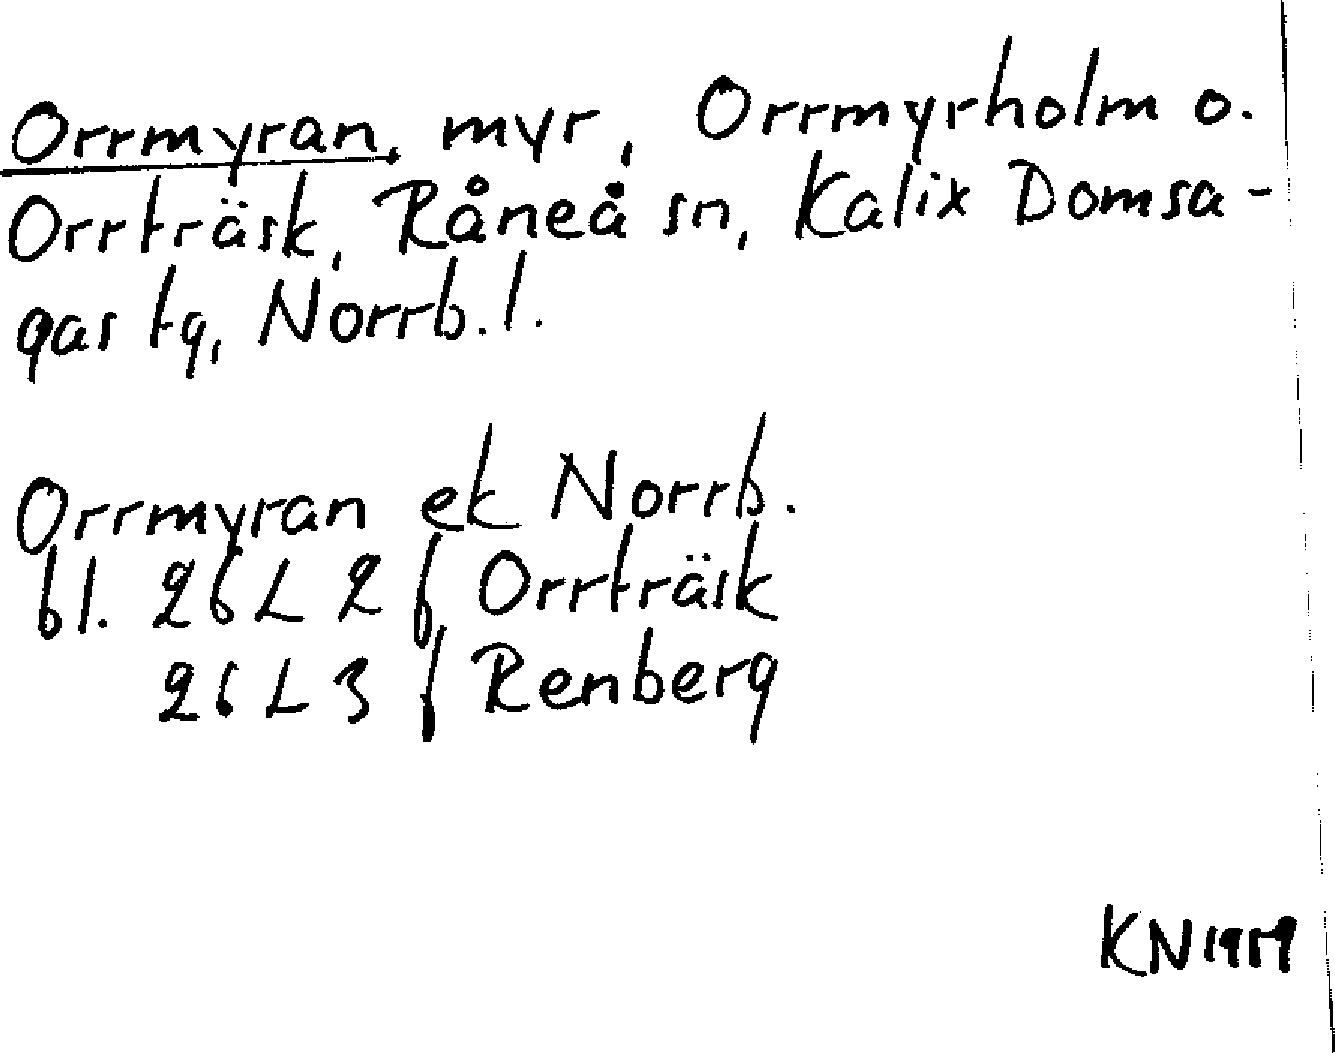 Orrmyran, myr, Orrmyrholm o.
Orrträsk, Råneå sn, Kalix Domsa-
gas tg, Norrb. l.
Orrmyran ek Norrb.
bl. 26 L 2 f Orrträsk
26 L 3 f Renberg
KN 1959